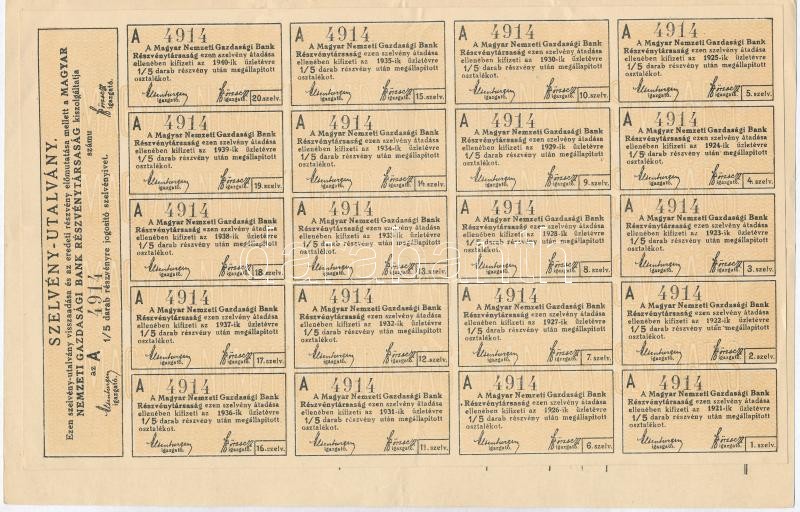 SZELVÉNY-UTALVÁNY.
Ezen szelvény-utalvány visszaadása és az eredeti részvény előmutatása mellett a MAGYAR
NEMZETI GAZDASÁGI BANK RÉSZVÉNYTÁRSASÁG kiszolgáltatja
az A 4914 számu
1/5 darab részvényre jogosító szelvényivet.
igazgató. igazgató.
A 4914
A Magyar Nemzeti Gazdasági Bank
Részvénytársaság ezen szelvény átadása
ellenében kifizeti az 1940-ik üzletévre
1/5 darab részvény után megállapított
osztalékot.
igazgató. igazgató. 20.szelv.
A 4914
A Magyar Nemzeti Gazdasági Bank
Részvénytársaság ezen szelvény átadása
ellenében kifizeti az 1935-ik üzletévre
1/5 darab részvény után megállapított
osztalékot.
igazgató. igazgató. 15.szelv.
A 4914
A Magyar Nemzeti Gazdasági Bank
Részvénytársaság ezen szelvény átadása
ellenében kifizeti az 1930-ik üzletévre
1/5 darab részvény után megállapított
osztalékot.
igazgató. igazgató. 10.szelv.
A 4914
A Magyar Nemzeti Gazdasági Bank
Részvénytársaság ezen szelvény átadása
ellenében kifizeti az 1925-ik üzletévre
1/5 darab részvény után megállapított
osztalékot.
igazgató. igazgató. 5.szelv.
A 4914
A Magyar Nemzeti Gazdasági Bank
Részvénytársaság ezen szelvény átadása
ellenében kifizeti az 1939-ik üzletévre
1/5 darab részvény után megállapított
osztalékot.
igazgató. igazgató. 19.szelv.
A 4914
A Magyar Nemzeti Gazdasági Bank
Részvénytársaság ezen szelvény átadása
ellenében kifizeti az 1934-ik üzletévre
1/5 darab részvény után megállapított
osztalékot.
igazgató. igazgató. 14.szelv.
A 4914
A Magyar Nemzeti Gazdasági Bank
Részvénytársaság ezen szelvény átadása
ellenében kifizeti az 1929-ik üzletévre
1/5 darab részvény után megállapított
osztalékot.
igazgató. igazgató. 9.szelv.
A 4914
A Magyar Nemzeti Gazdasági Bank
Részvénytársaság ezen szelvény átadása
ellenében kifizeti az 1924-ik üzletévre
1/5 darab részvény után megállapított
osztalékot.
igazgató. igazgató. 4.szelv.
A 4914
A Magyar Nemzeti Gazdasági Bank
Részvénytársaság ezen szelvény átadása
ellenében kifizeti az 1938-ik üzletévre
1/5 darab részvény után megállapított
osztalékot.
igazgató. igazgató. 18.szelv.
A 4914
A Magyar Nemzeti Gazdasági Bank
Részvénytársaság ezen szelvény átadása
ellenében kifizeti az 1933-ik üzletévre
1/5 darab részvény után megállapított
osztalékot.
igazgató. igazgató. 13.szelv.
A 4914
A Magyar Nemzeti Gazdasági Bank
Részvénytársaság ezen szelvény átadása
ellenében kifizeti az 1928-ik üzletévre
1/5 darab részvény után megállapított
osztalékot.
igazgató. igazgató. 8.szelv.
A 4914
A Magyar Nemzeti Gazdasági Bank
Részvénytársaság ezen szelvény átadása
ellenében kifizeti az 1923-ik üzletévre
1/5 darab részvény után megállapított
osztalékot.
igazgató. igazgató. 3.szelv.
A 4914
A Magyar Nemzeti Gazdasági Bank
Részvénytársaság ezen szelvény átadása
ellenében kifizeti az 1937-ik üzletévre
1/5 darab részvény után megállapított
osztalékot.
igazgató. igazgató. 17.szelv.
A 4914
A Magyar Nemzeti Gazdasági Bank
Részvénytársaság ezen szelvény átadása
ellenében kifizeti az 1932-ik üzletévre
1/5 darab részvény után megállapított
osztalékot.
igazgató. igazgató. 12.szelv.
A 4914
A Magyar Nemzeti Gazdasági Bank
Részvénytársaság ezen szelvény átadása
ellenében kifizeti az 1927-ik üzletévre
1/5 darab részvény után megállapított
osztalékot.
igazgató. igazgató. 7.szelv.
A 4914
A Magyar Nemzeti Gazdasági Bank
Részvénytársaság ezen szelvény átadása
ellenében kifizeti az 1922-ik üzletévre
1/5 darab részvény után megállapított
osztalékot.
igazgató. igazgató. 2.szelv.
A 4914
A Magyar Nemzeti Gazdasági Bank
Részvénytársaság ezen szelvény átadása
ellenében kifizeti az 1936-ik üzletévre
1/5 darab részvény után megállapított
osztalékot.
igazgató. igazgató. 16.szelv.
A 4914
A Magyar Nemzeti Gazdasági Bank
Részvénytársaság ezen szelvény átadása
ellenében kifizeti az 1931-ik üzletévre
1/5 darab részvény után megállapított
osztalékot.
igazgató. igazgató. 11.szelv.
A 4914
A Magyar Nemzeti Gazdasági Bank
Részvénytársaság ezen szelvény átadása
ellenében kifizeti az 1926-ik üzletévre
1/5 darab részvény után megállapított
osztalékot.
igazgató. igazgató. 6.szelv.
A 4914
A Magyar Nemzeti Gazdasági Bank
Részvénytársaság ezen szelvény átadása
ellenében kifizeti az 1921-ik üzletévre
1/5 darab részvény után megállapított
osztalékot.
igazgató. igazgató. 1.szelv.